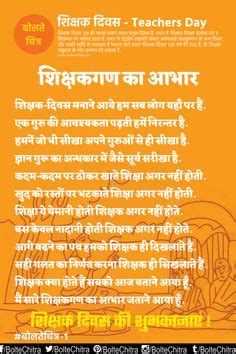 बोलते
चित्र
शिक्षक दिवस - Teachers Day
शिक्षकगण का आभार
शिक्षक-दिवस मनाने आये हम सब लोग यहाँ पर हैं.
एक गुरु की आवश्यकता पड़ती हमें निरन्तर है.
हमनें जो भी सीखा अपने गुरुओं से ही सीखा है.
ज्ञान गुरु का अन्धकार में जैसे सूर्य सरीखा है.
कदम-कदम पर ठोकर खाते शिक्षा अगर नहीं होती.
खुद को रस्तों पर भटकाते शिक्षा अगर नहीं होती.
शिक्षा ये बेमानी होती शिक्षक अगर नहीं होते.
बस केवल नादानी होती शिक्षक अगर नहीं होते.
आगे बढने का पथ हमको शिक्षक ही दिखलाते हैं.
सही गलत का निर्णय करना शिक्षक ही सिखलाते हैं.
शिक्षक क्या होते हैं सबको आज बताने आया हूँ.
मैं सारे शिक्षकगण का आभार जताने आया हूँ.
शिक्षक दिवस की शुभकानाएं !
#बोलतेचित्र-1
/BolteChitra /BolteChitra /BolteChitra /BolteChitra